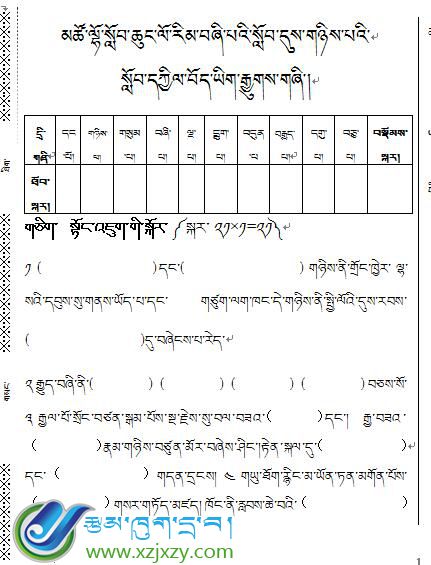 མཚོ་ལྷོ་སློབ་ཆུང་ལོ་རིམ་བཞི་པའི་སློབ་དུས་གཉིས་པའི་
སློབ་དཀྱིལ་བོད་ཡིག་རྒྱུགས་གཞི།།
དྲི་གཞི། དང་པོ། གཉིས་པ། གསུམ་པ། བཞི་པ། ལྔ་པ། དྲུག་པ། བདུན་པ། བརྒྱད་པ། དགུ་པ། བཅུ་པ། བསྡོམས་སྐར།
ཐོབ་སྐར།
གཅིག སྟོང་འཇུག་གི་སྐོར (སྐར་ ༢༡×༡=༢༡)
༡ ( )དང་( ) གཉིས་ནི་གྲོང་ཁྱེར་ ལྷ་
སའི་དབུས་སུ་གནས་ཡོད་པ་དང་ གཙུག་ལག་ཁང་དེ་གཉིས་ནི་སྤྱི་ལོའི་དུས་རབས་
( )དུ་བཞེངས་པ་རེད་
༢ རྒྱུད་བཞི་ནི་( ) ( ) ( ) ( ) བཅས་སོ་
༣ རྒྱལ་པོ་སྲོང་བཙན་སྒམ་པོས་སྔ་རྗེས་སུ་བལ་བཟའ་( )དང་། རྒྱ་བཟའ་
( )རྣམ་གཉིས་བཙུན་མོར་བཞེས་ཤིང་།རྟེན་སྐལ་དུ་( )
དང་ ( ) གདན་དྲངས། ༤ གཡུ་ཐོག་རྙིང་མ་ཡོན་ཏན་མགོན་པོས་
( ) གསར་གཏོད་མཛད། ཁོང་ནི་རླབས་ཆེ་བའི་( )
རྩམ་ཁུག་དྲ་བ།
www.xzjxzy.com
1